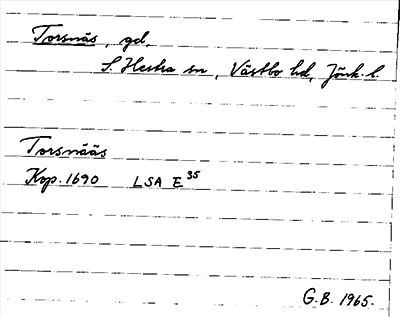 Torsnäs, gd,
S. Hestra sn, Västbo hd, Jönk. l.
Torsnääs
Kop. 1690 LSA E 35
G.B. 1965.